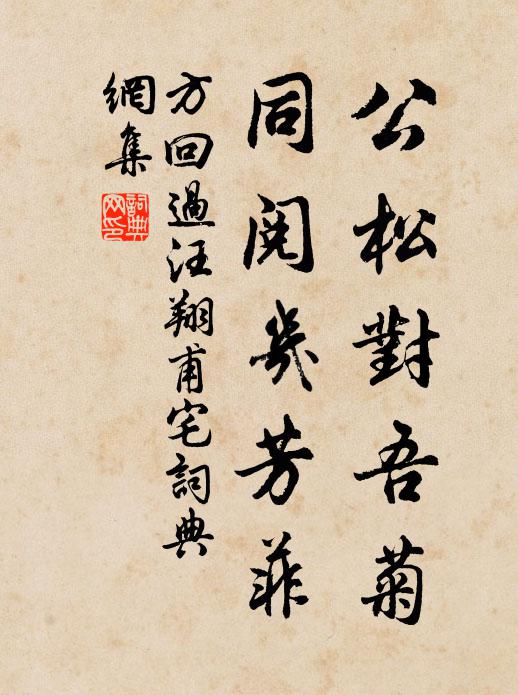 公松對吾菊
同閱幾芳菲
方回過汪翔甫宅詞典
網集
詞典網印